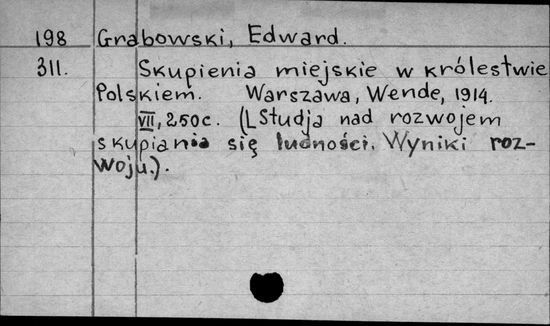 198 Grabowski, Edward.
311. Skupienia miejskie w Królestwie
Polskiem. Warszawa, Wende, 1914.
VII, 250c. (I. Studja nad rozwojem
skupiania się ludności. Wyniki roz-
woju.).